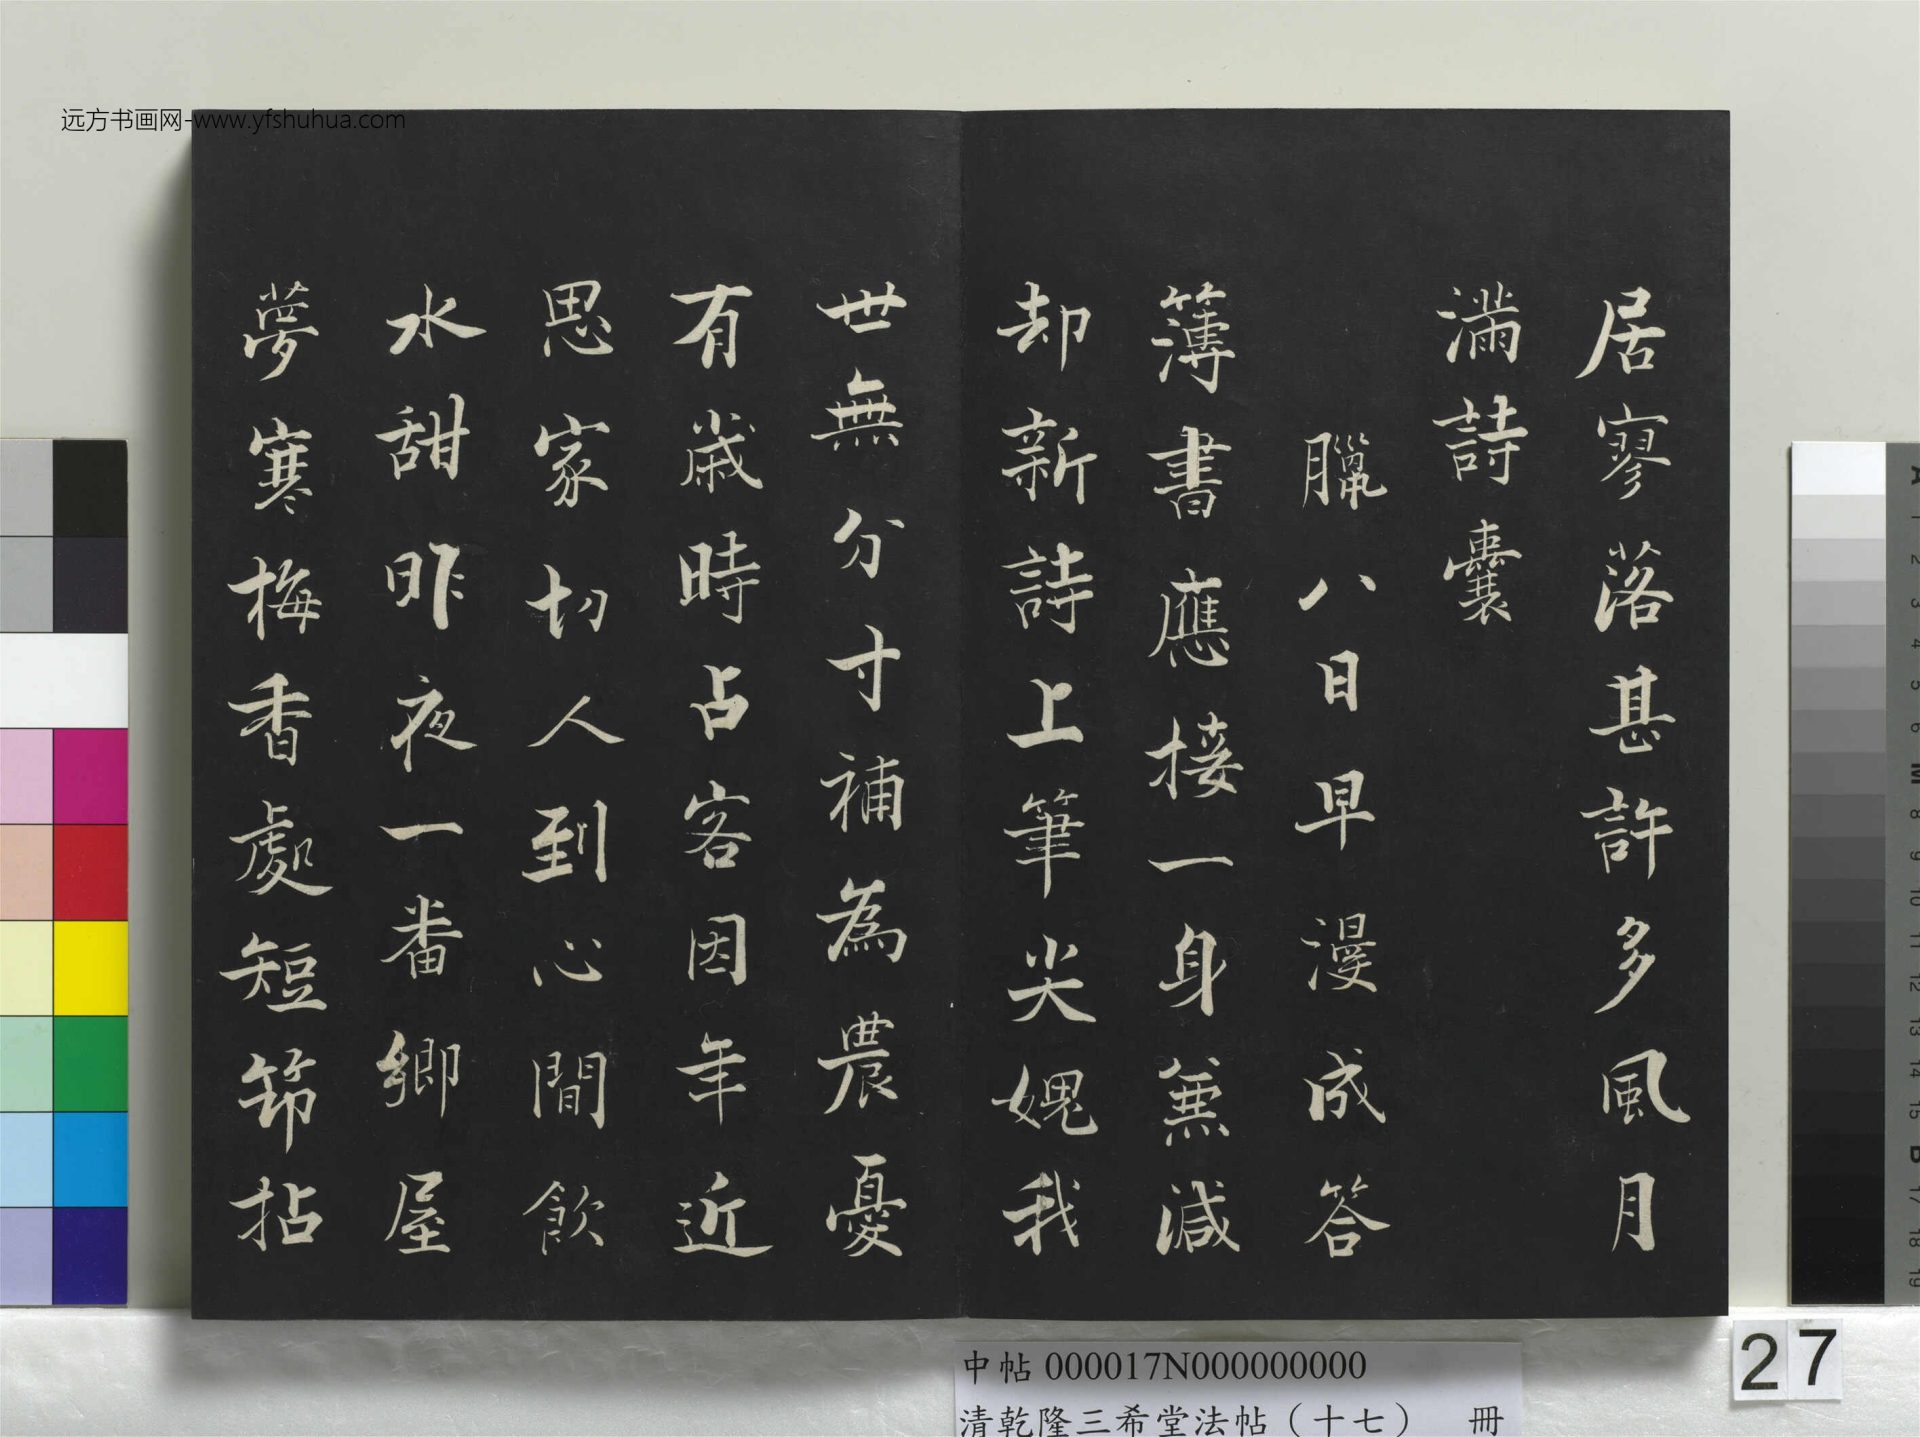 远方书画网-www.yfshuhua.com
居寥落甚許多風月
滿詩囊
臘八日早漫成答
簿書應接一身兼減
却新詩上筆尖媿我
世無分寸補為農憂
有歲時占客因年近
思家切人到心閒飲
水甜昨夜一番鄉屋
夢寒梅香處短節拈
中帖 000017N000000000
清乾隆三希堂法帖（十七） 冊
27